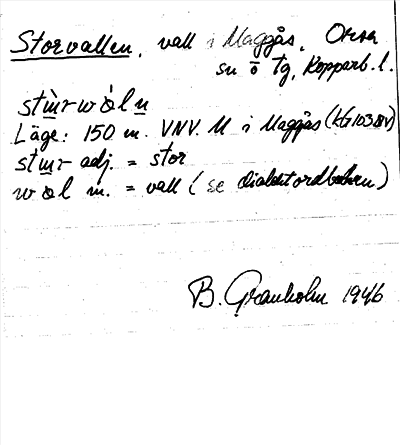 Storvallen, vall i Maggås, Orsa
sn o Tg, Kopparb. l.
stɯ̀rwȯ̀ln̲
Läge: 150 m. VNV. M i Maggås (KG1038V)
stɯr adj. = stor
wȯl m. = vall (se dialektordboken)
B. Granholm 1946